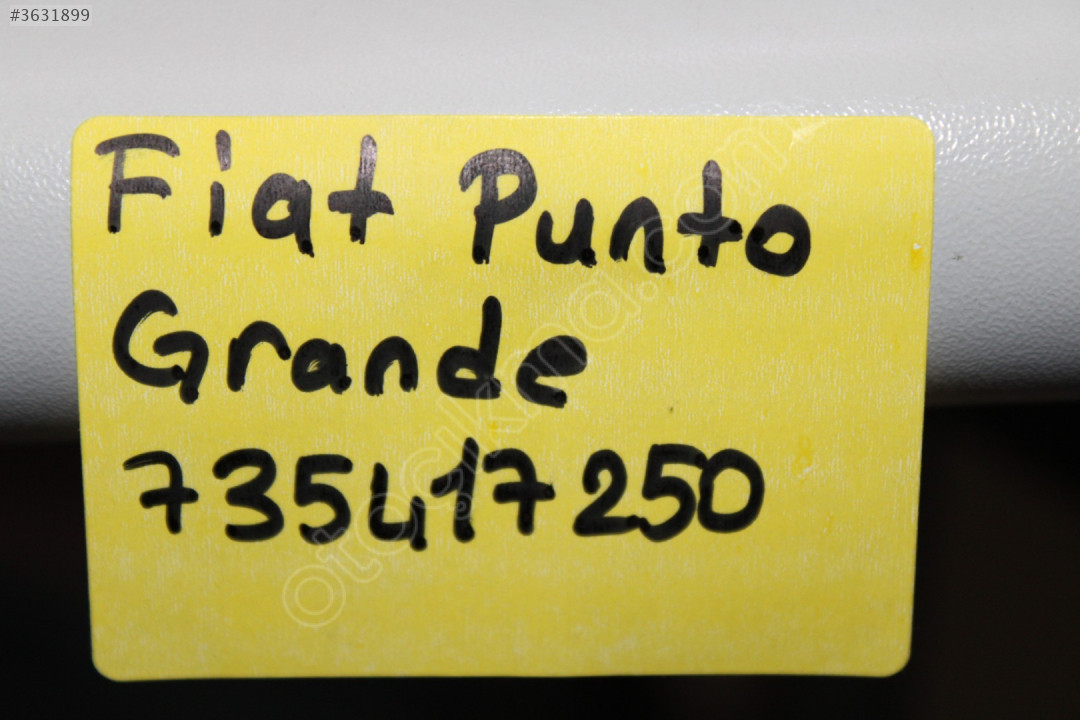 #3631899
Fiat Punto
Grande
735417250
otocikma.com